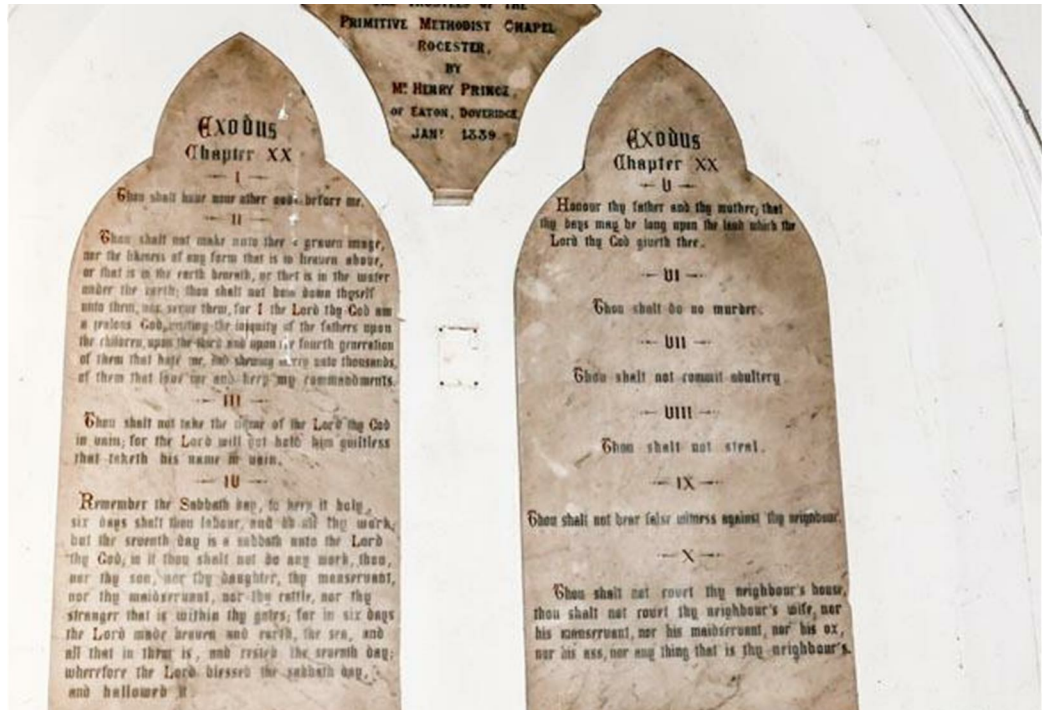 THE TRUSTEES OF THE
PRIMITIVE METHODIST CHAPEL
ROCESTER,
BY
MR HENRY PRINCE,
OF EATON, DOVERIDGE,
JANY 1889
Exodus
Chapter XX
I
Thou shalt have none other gods before me.
II
Thou shalt not make unto thee a graven image,
nor the likeness of any form that is in heaven above,
or that is in the earth beneath, or that is in the water
under the earth; thou shalt not bow down thyself
unto them, nor serve them, for I the Lord thy God am
a jealous God, visiting the iniquity of the fathers upon
the children, upon the third and upon the fourth generation
of them that hate me, and shewing mercy unto thousands,
of them that love me and keep my commandments.
III
Thou shalt not take the name of the Lord thy God
in vain; for the Lord will not hold him guiltless
that taketh his name in vain.
IV
Remember the Sabbath day, to keep it holy,
six days shalt thou labour, and do all thy work;
but the seventh day is a sabbath unto the Lord
thy God; in it thou shalt not do any work, thou,
nor thy son, nor thy daughter, thy manservant,
nor thy maidservant, nor thy cattle, nor thy
stranger that is within thy gates; for in six days
the Lord made heaven and earth, the sea, and
all that in them is, and rested the seventh day;
wherefore the Lord blessed the sabbath day,
and hallowed it
Exodus
Chapter XX
V
Honour thy father and thy mother; that
thy days may be long upon the land which the
Lord thy God giveth thee.
VI
Thou shalt do no murder.
VII
Thou shalt not commit adultery
VIII
Thou shalt not steal.
IX
Thou shalt not bear false witness against thy neighbour.
X
Thou shalt not covet thy neighbour's house,
thou shalt not covet thy neighbour's wife, nor
his manservant, nor his maidservant, nor his ox,
nor his ass, nor any thing that is thy neighbour's.